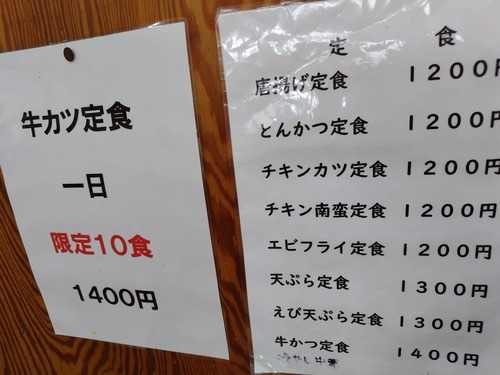 牛カツ定食
一日
限定10食
1400円
定 食
唐揚げ定食 1200円
とんかつ定食 1200円
チキンカツ定食 1200円
チキン南蛮定食 1200円
エビフライ定食 1200円
天ぷら定食 1300円
えび天ぷら定食 1300円
牛かつ定食 1400円
冷やし中華